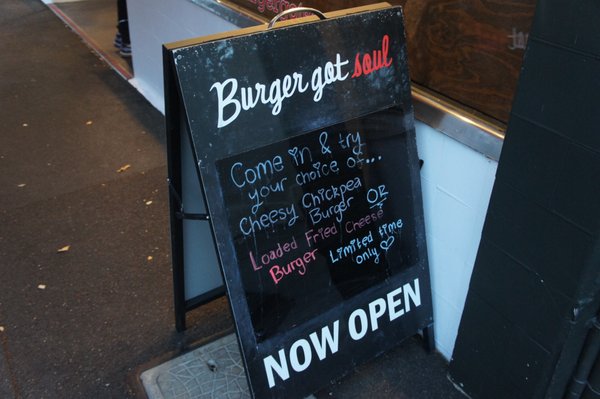 Burger got soul
Come in & try
your choice of...
Cheesy Chickpea
Burger OR
Loaded Fried Cheese
Burger
Limited time
only
NOW OPEN